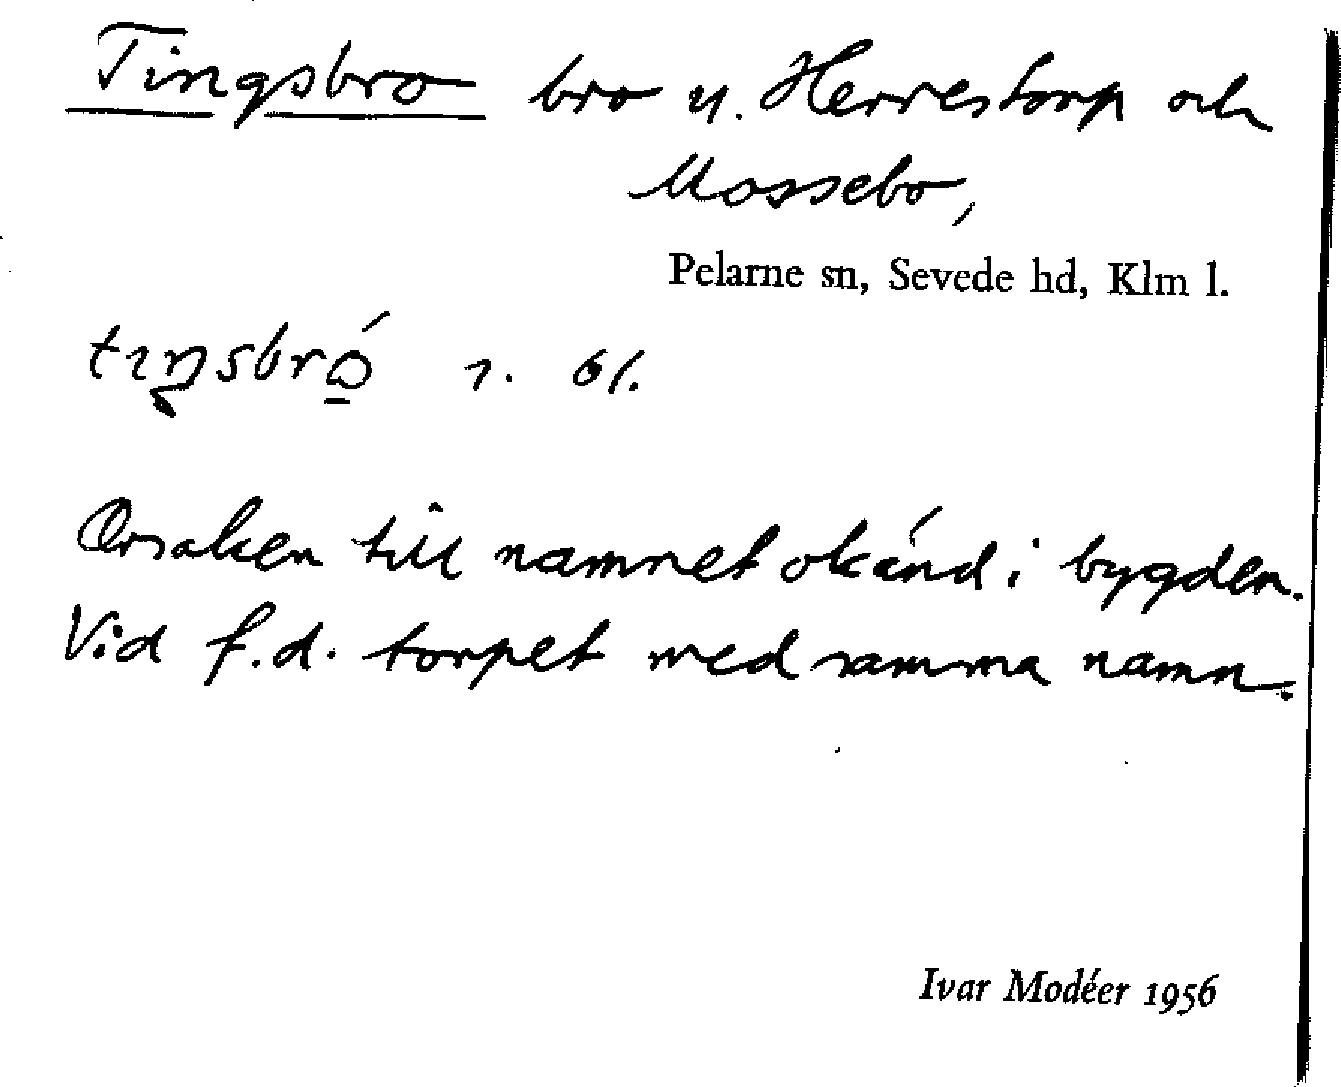 Tingsbro bro y. Herrestorp och
Mossebo,
Pelarne sn, Sevede hd, Klm l.
1. bl.
Orsaken till namnet okänd i bygden.
Vid f.d. torpet med samma namn.
Ivar Modéer 1956